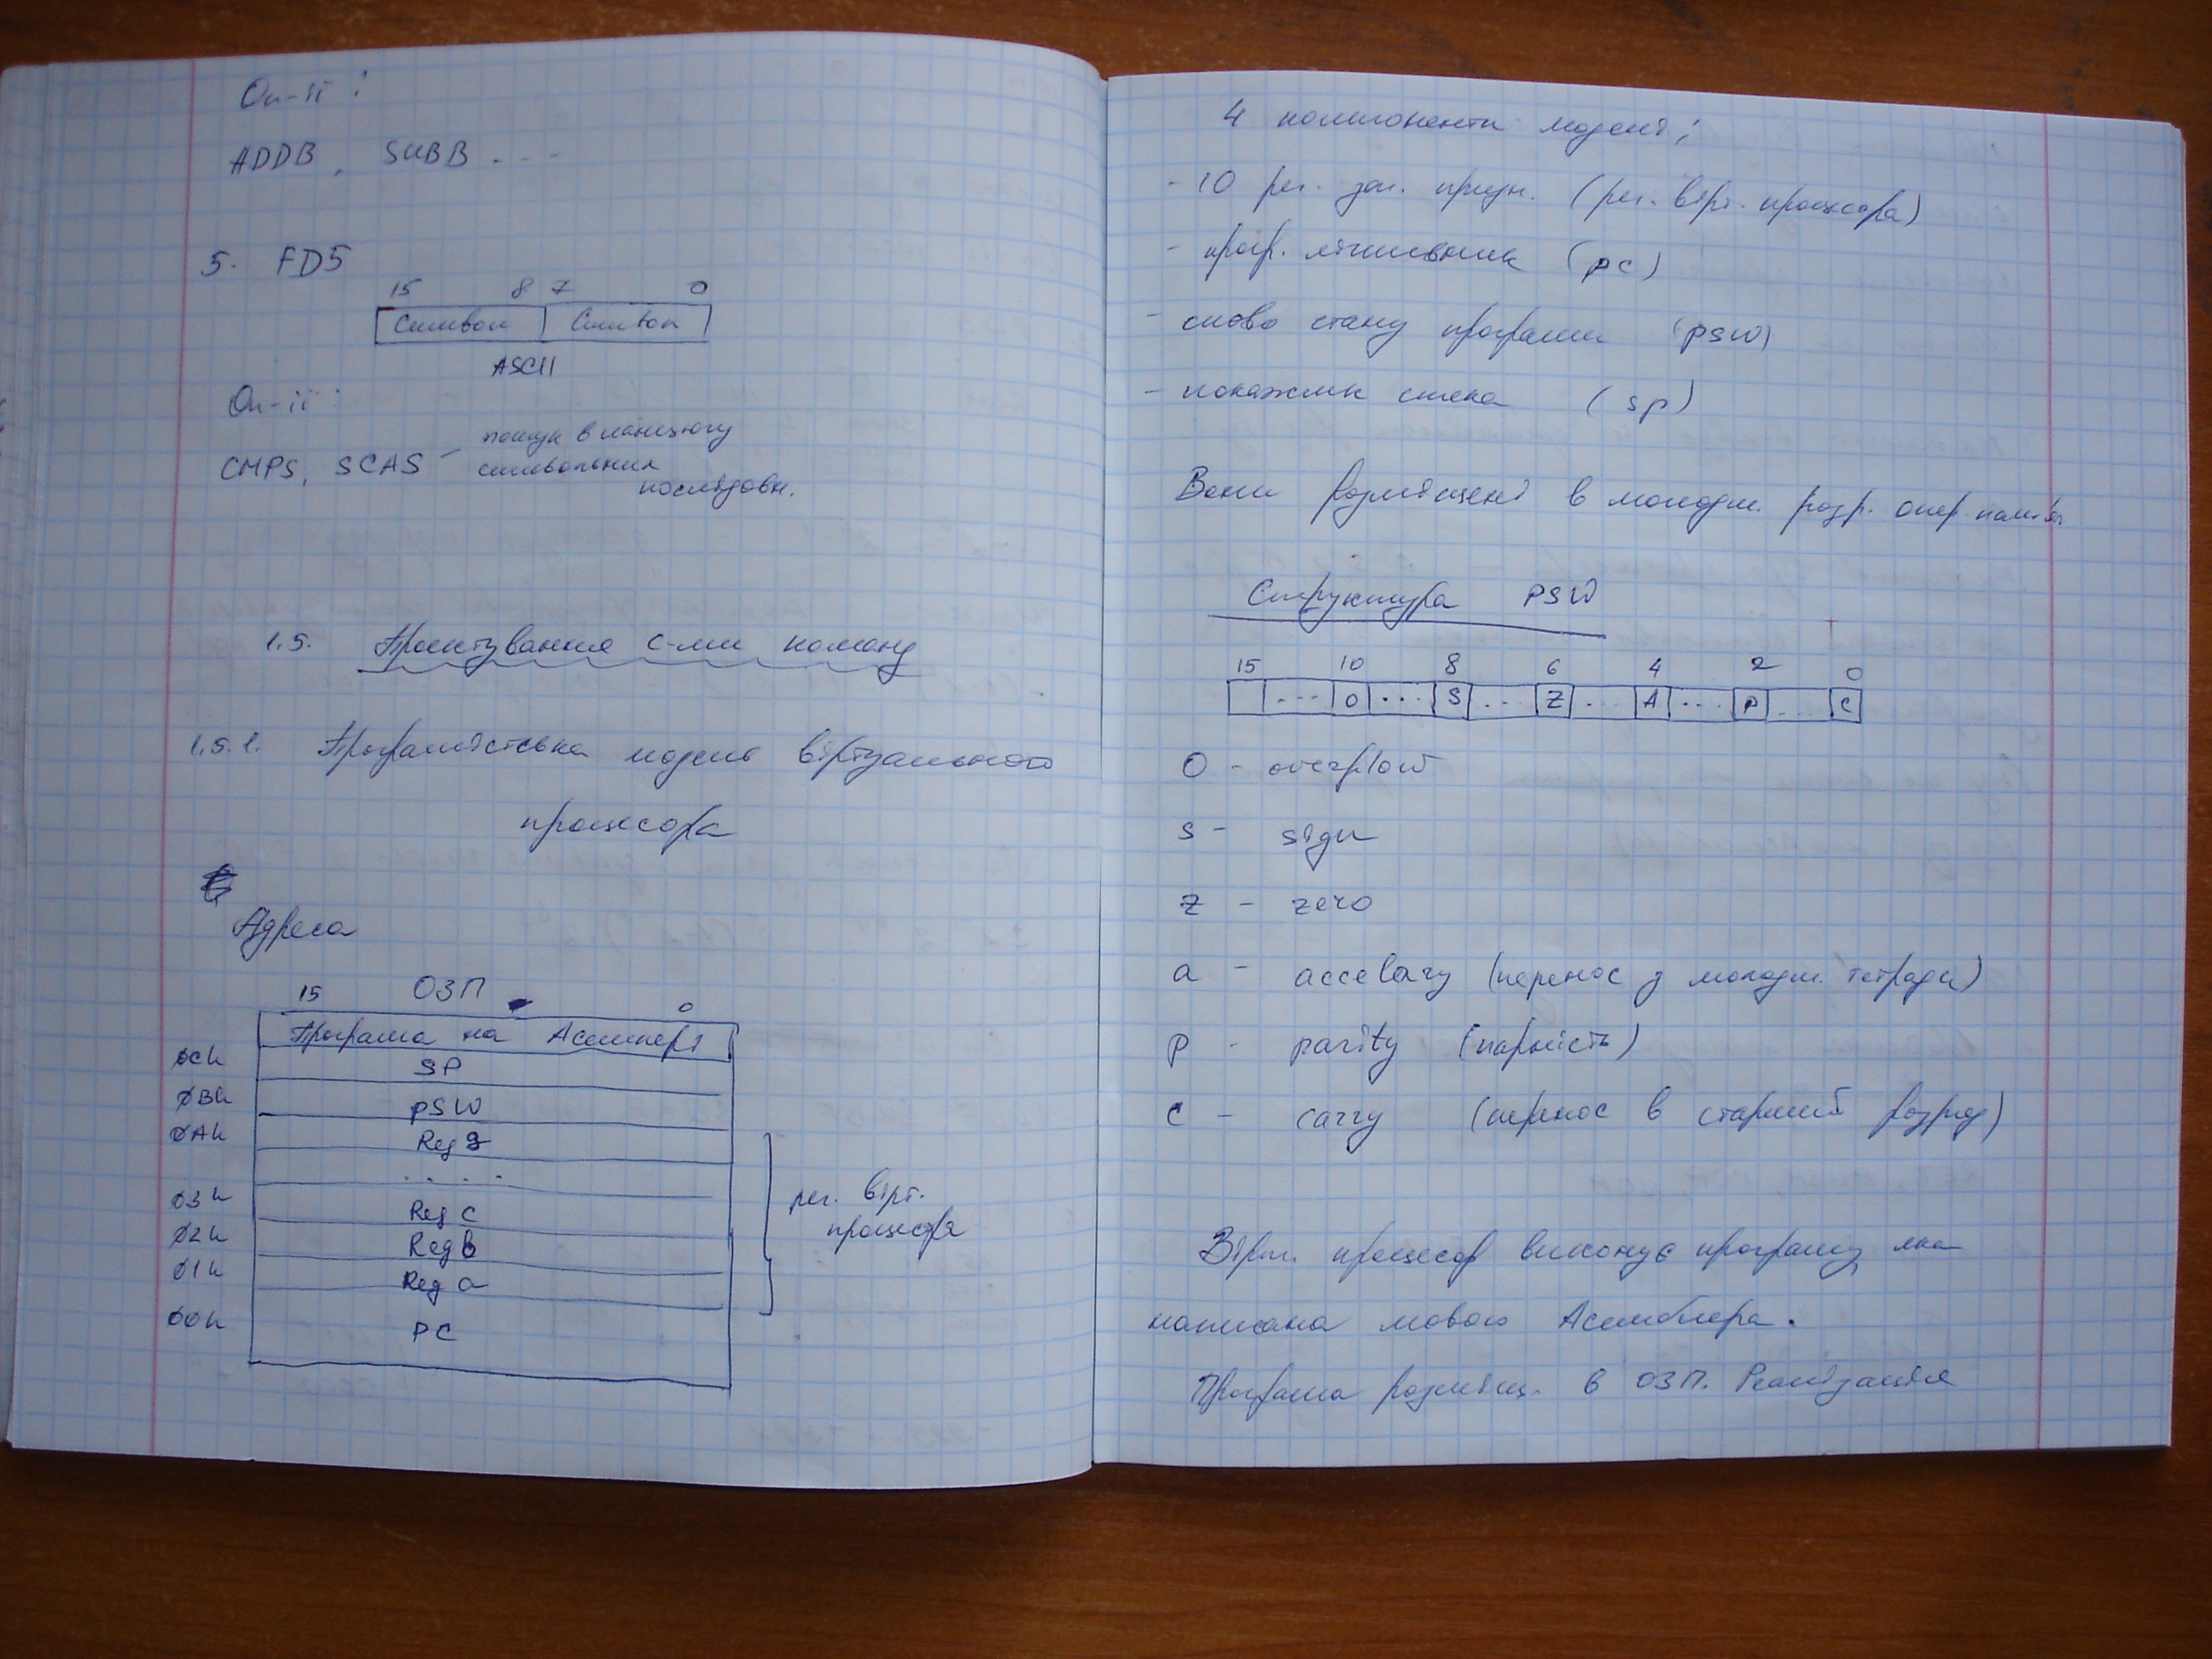 Оп-ії:
ADDB, SUBB ...
5. FD5
15 8 7 0
Символ Символ
ASCII
Оп-ії:
CMPS, SCAS – пошук в ланцюгу
символьних
послідовн.
1.5. Проектування с-ми команд
1.5.1. Програмістська модель віртуального
процесора
Адреса
15 ОЗП 0
Програма на Асемблері
0Ch SP
0Bh PSW
0Ah Reg
. . . .
03h Reg c
02h Reg b
01h Reg a
00h PC
рег. вірт.
процесора
4 компоненти моделі:
- 10 рег. заг. призн. (рег. вірт. процесора)
- прогр. лічильник (PC)
- слово стану програми (PSW)
- покажчик стека (SP)
Вони розміщені в молодш. розр. опер пам'яті
Структура PSW
15 10 8 6 4 2 0
... O ... S ... Z ... A ... P ... C
O - overflow
s - sign
z - zero
a - accelary (перенос з молодш. тетради)
p - parity (парність)
c - carry (перенос в старший розряд)
Вірт. процесор виконує програму, яка
написана мовою Асемблера.
Програма розміщ. в ОЗП. Реалізація